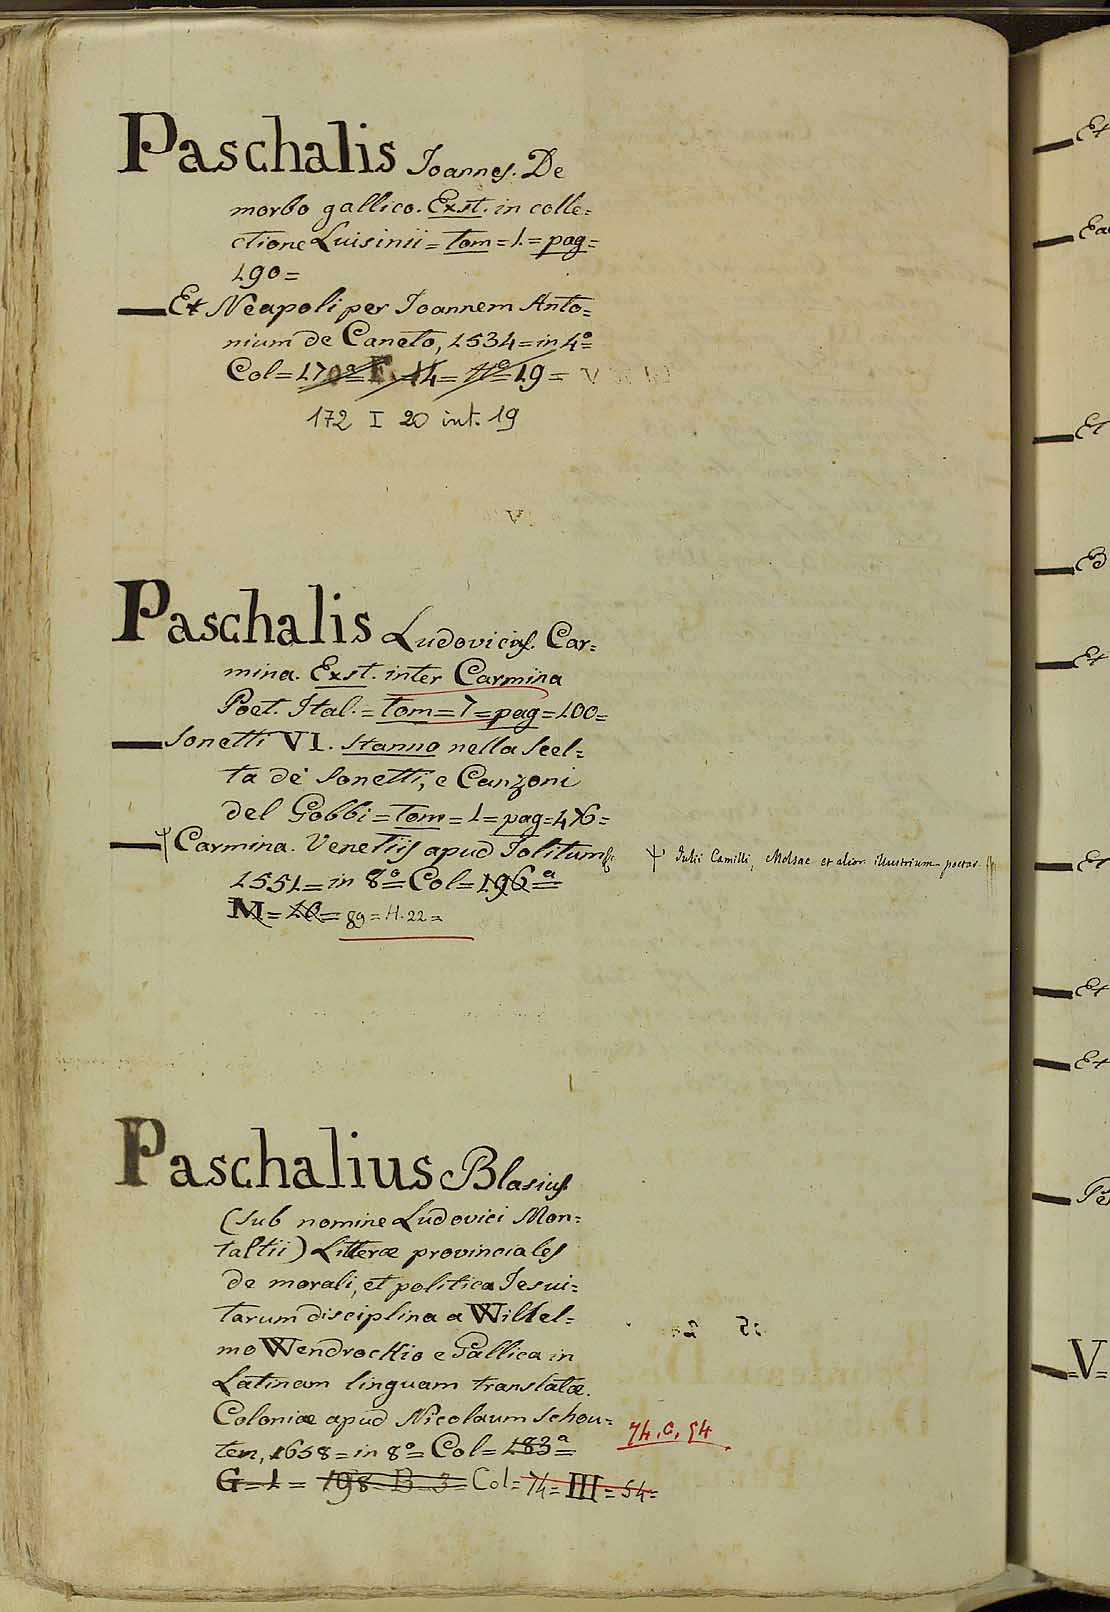 Paschalis Ioannes. De
morbo gallico. Exst. in colle=
ctione Luisinii = tom = 1. = pag =
190 =
Et Neapoli per Ioannem Anto=
nium de Caneto, 1534 = in 4º =
Col = 170ª = F. 14 = Nº = 19 =
172 I 20 int. 19
Paschalis Ludovicus. Car=
mina. Exst. inter Carmina
Poet. Ital. = tom = 7 = pag = 100 =
Sonetti VI. Stanno nella Scel=
ta de' Sonetti, e Canzoni
del Gobbi = tom = 1 = pag = 476 =
Carmina. Venetiis apud Iolitum
Iulii Camilli, Molsae et alior. illustrium poetar.
1551 = in 8º = Col = 196ª =
M = 10 = 89 = H. 22 =
Paschalius Blasius
(sub nomine Ludovici Mon=
taltii) Litteræ provinciales
de morali, et politica Iesui=
tarum disciplina a Wilhel=
mo Wendrockio e Gallica in
Latinam linguam translatæ.
Coloniæ apud Nicolaum Schou=
ten, 1658 = in 8º = Col = 183ª =
74. C. 54
G = 1 = 198 = B = 3 = Col = 74 = III = 54 =
Et
Et
Et
Et
Et
Et
V =